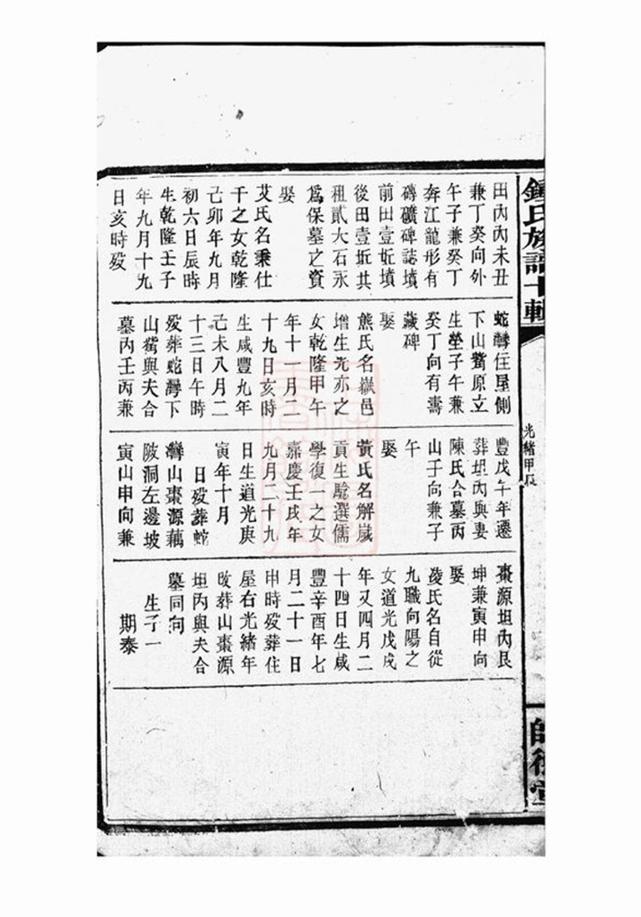 鍾氏族譜十輯
光緒甲辰
田內內未丑
兼丁癸向外
午子兼癸丁
奔江龍形有
磚礦碑誌墳
前田壹坵墳
後田壹坵共
租貳大石永
為保墓之資
娶
艾氏名秉仕
干之女乾隆
己卯年九月
初六日辰時
生乾隆壬子
年九月十九
日亥時歿
蛇灣住屋側
下山嘴原立
生塋子午兼
癸丁向有壽
藏碑
娶
熊氏名嶽邑
增生光亦之
女乾隆甲午
年十一月二
十九日亥時
生咸豐九年
己未八月二
十三日午時
歿葬蛇灣下
山嘴與夫合
墓丙壬丙兼
豐戊午年遷
葬坦內與妻
陳氏合墓丙
山子向兼子
午
娶
黃氏名解
貢生選儒
學復一之女
嘉慶壬戌年
九月二十九
日生道光庚
寅年十月
日歿葬蛇
灣山棗源藕
陂洞左邊坡
寅山申向兼
棗源坦內艮
坤兼寅申向
娶
凌氏名自從
九職向陽之
女道光戊戌
年又四月二
十四日生咸
豐辛酉年七
月二十一日
申時歿葬住
屋右光緒年
改葬山棗源
坦丙與夫合
墓同向
生子一
期泰
師堂